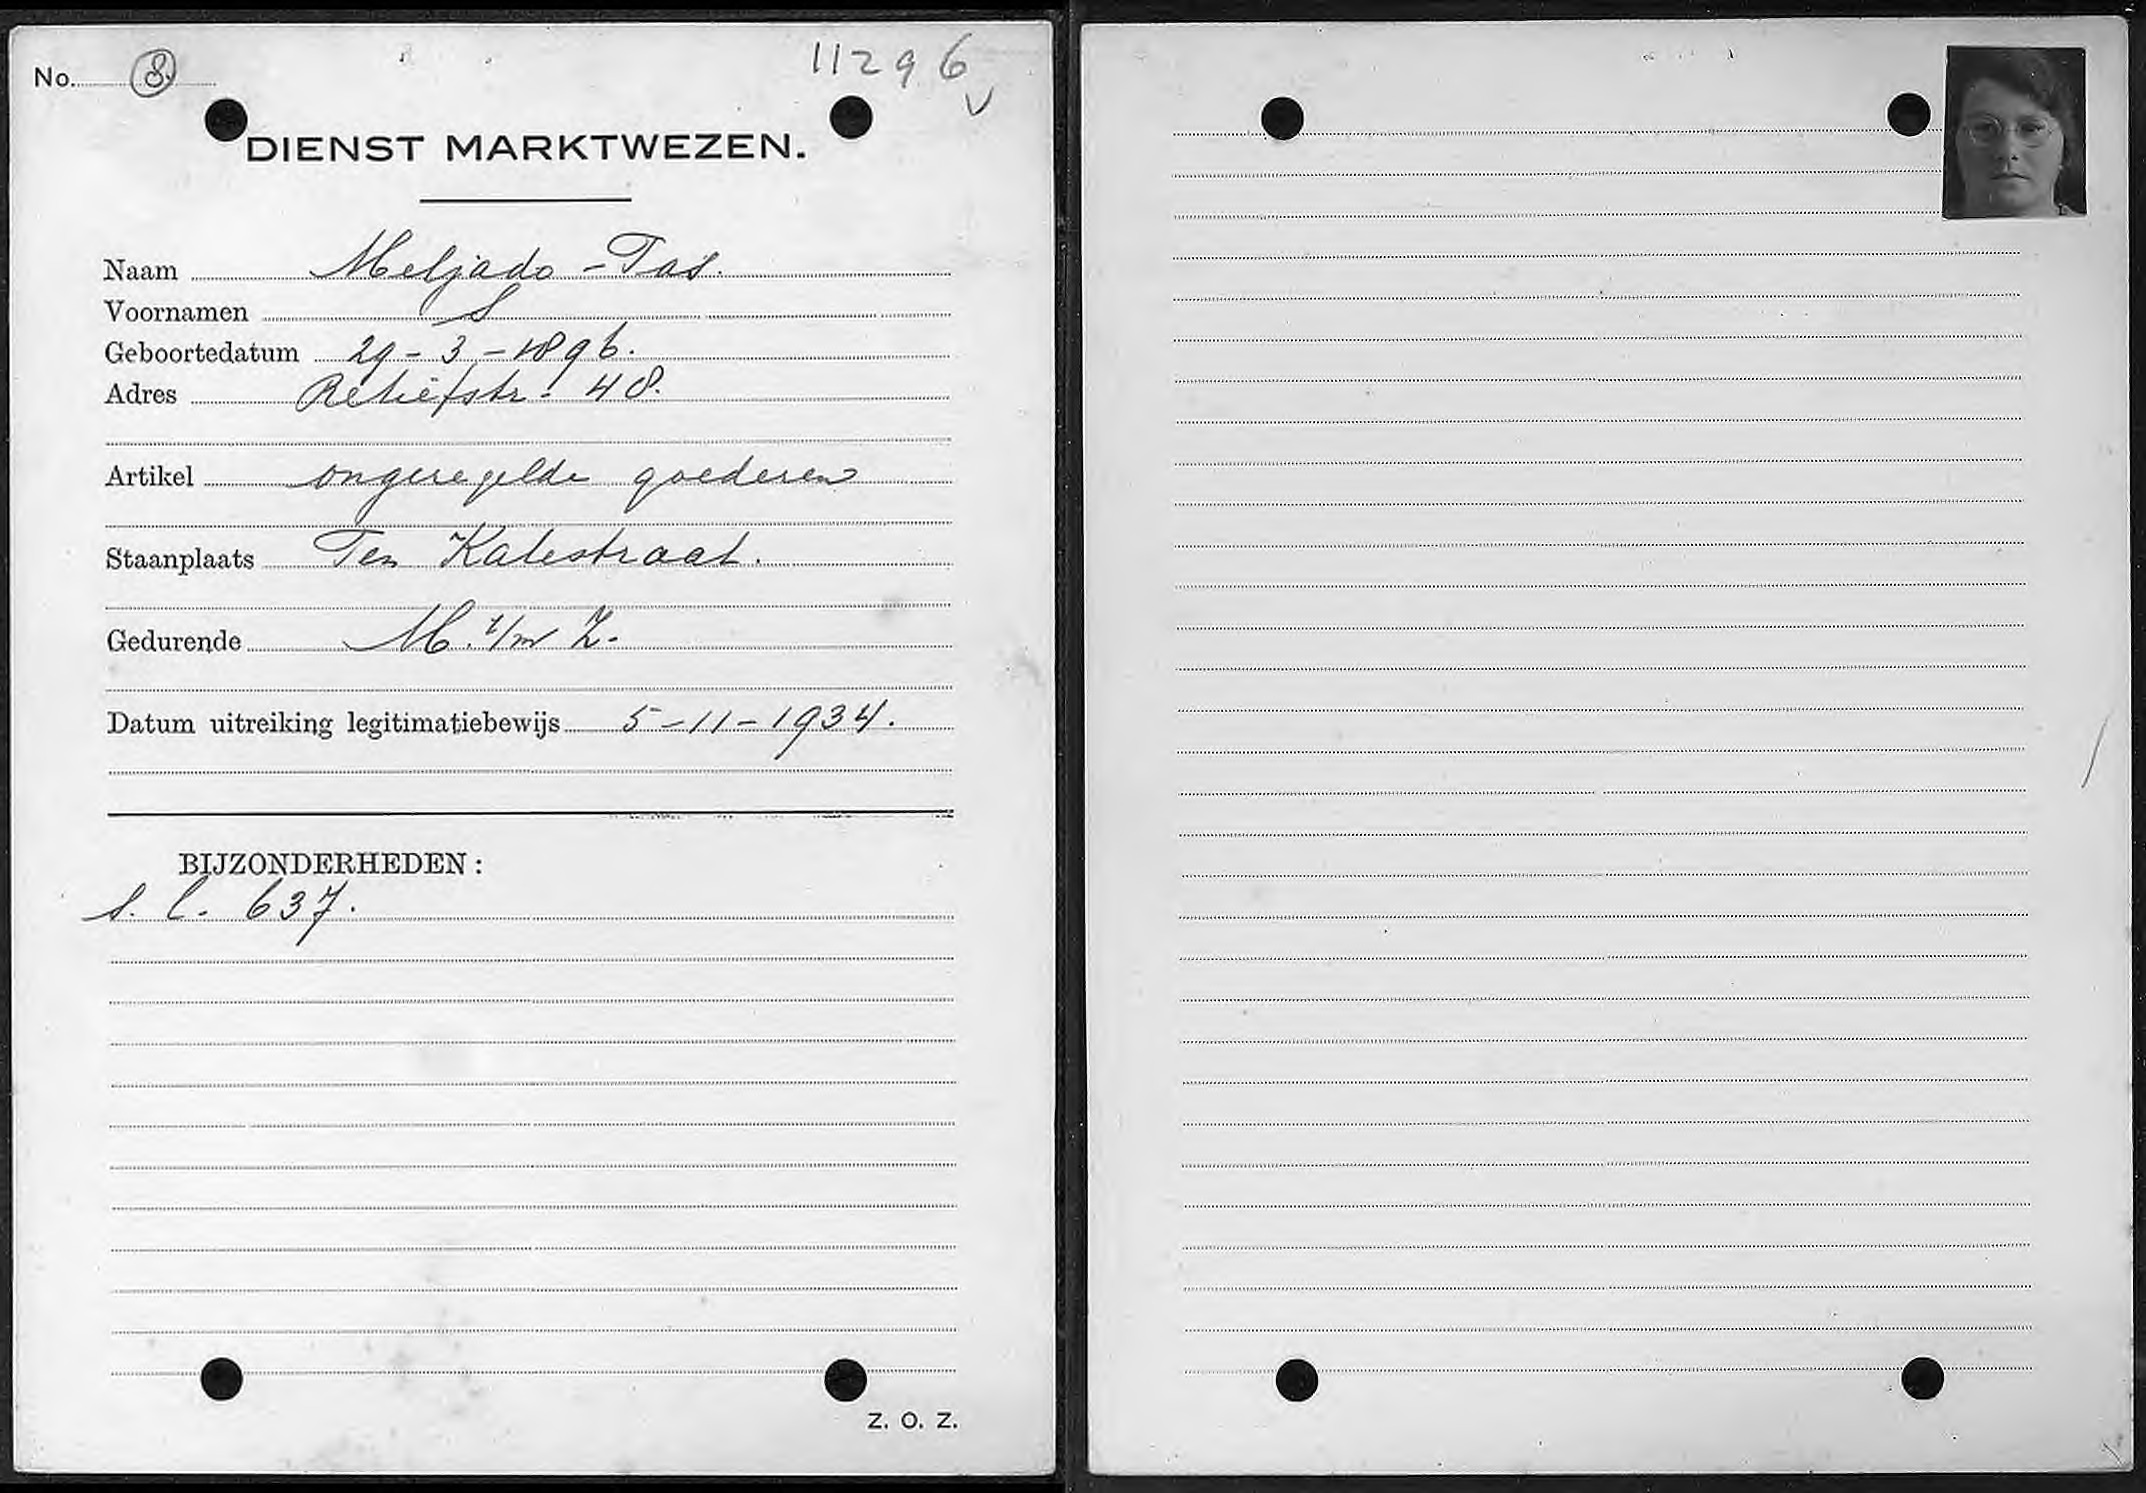 No. 8.
11296
V
DIENST MARKTWEZEN.
Naam Meljado - Tas.
Voornamen S
Geboortedatum 29 - 3 - 1896.
Adres Retiefstr. 48.
Artikel ongeregelde goederen
Staanplaats Ten Katestraat.
Gedurende M. t/m Z.
Datum uitreiking legitimatiebewijs 5-11-1934.
BIJZONDERHEDEN:
s. l. 637.
Z. O. Z.